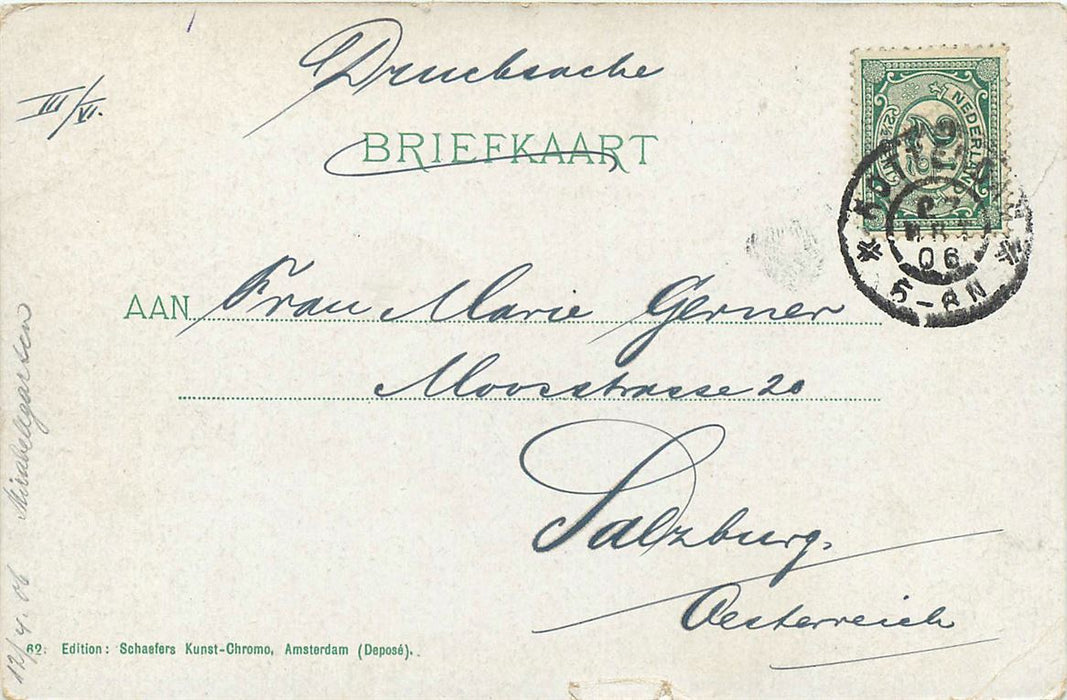 Drucksache
III/VI.
BRIEFKAART
NEDERLAND
2½
ROTTERDAM
MRT
06
5-8N
AAN Frau Marie Gerner
Moosstrasse 20
Salzburg.
Oesterreich
12/4.06 Mirabellgarten
62. Edition: Schaefers Kunst-Chromo, Amsterdam (Deposé).